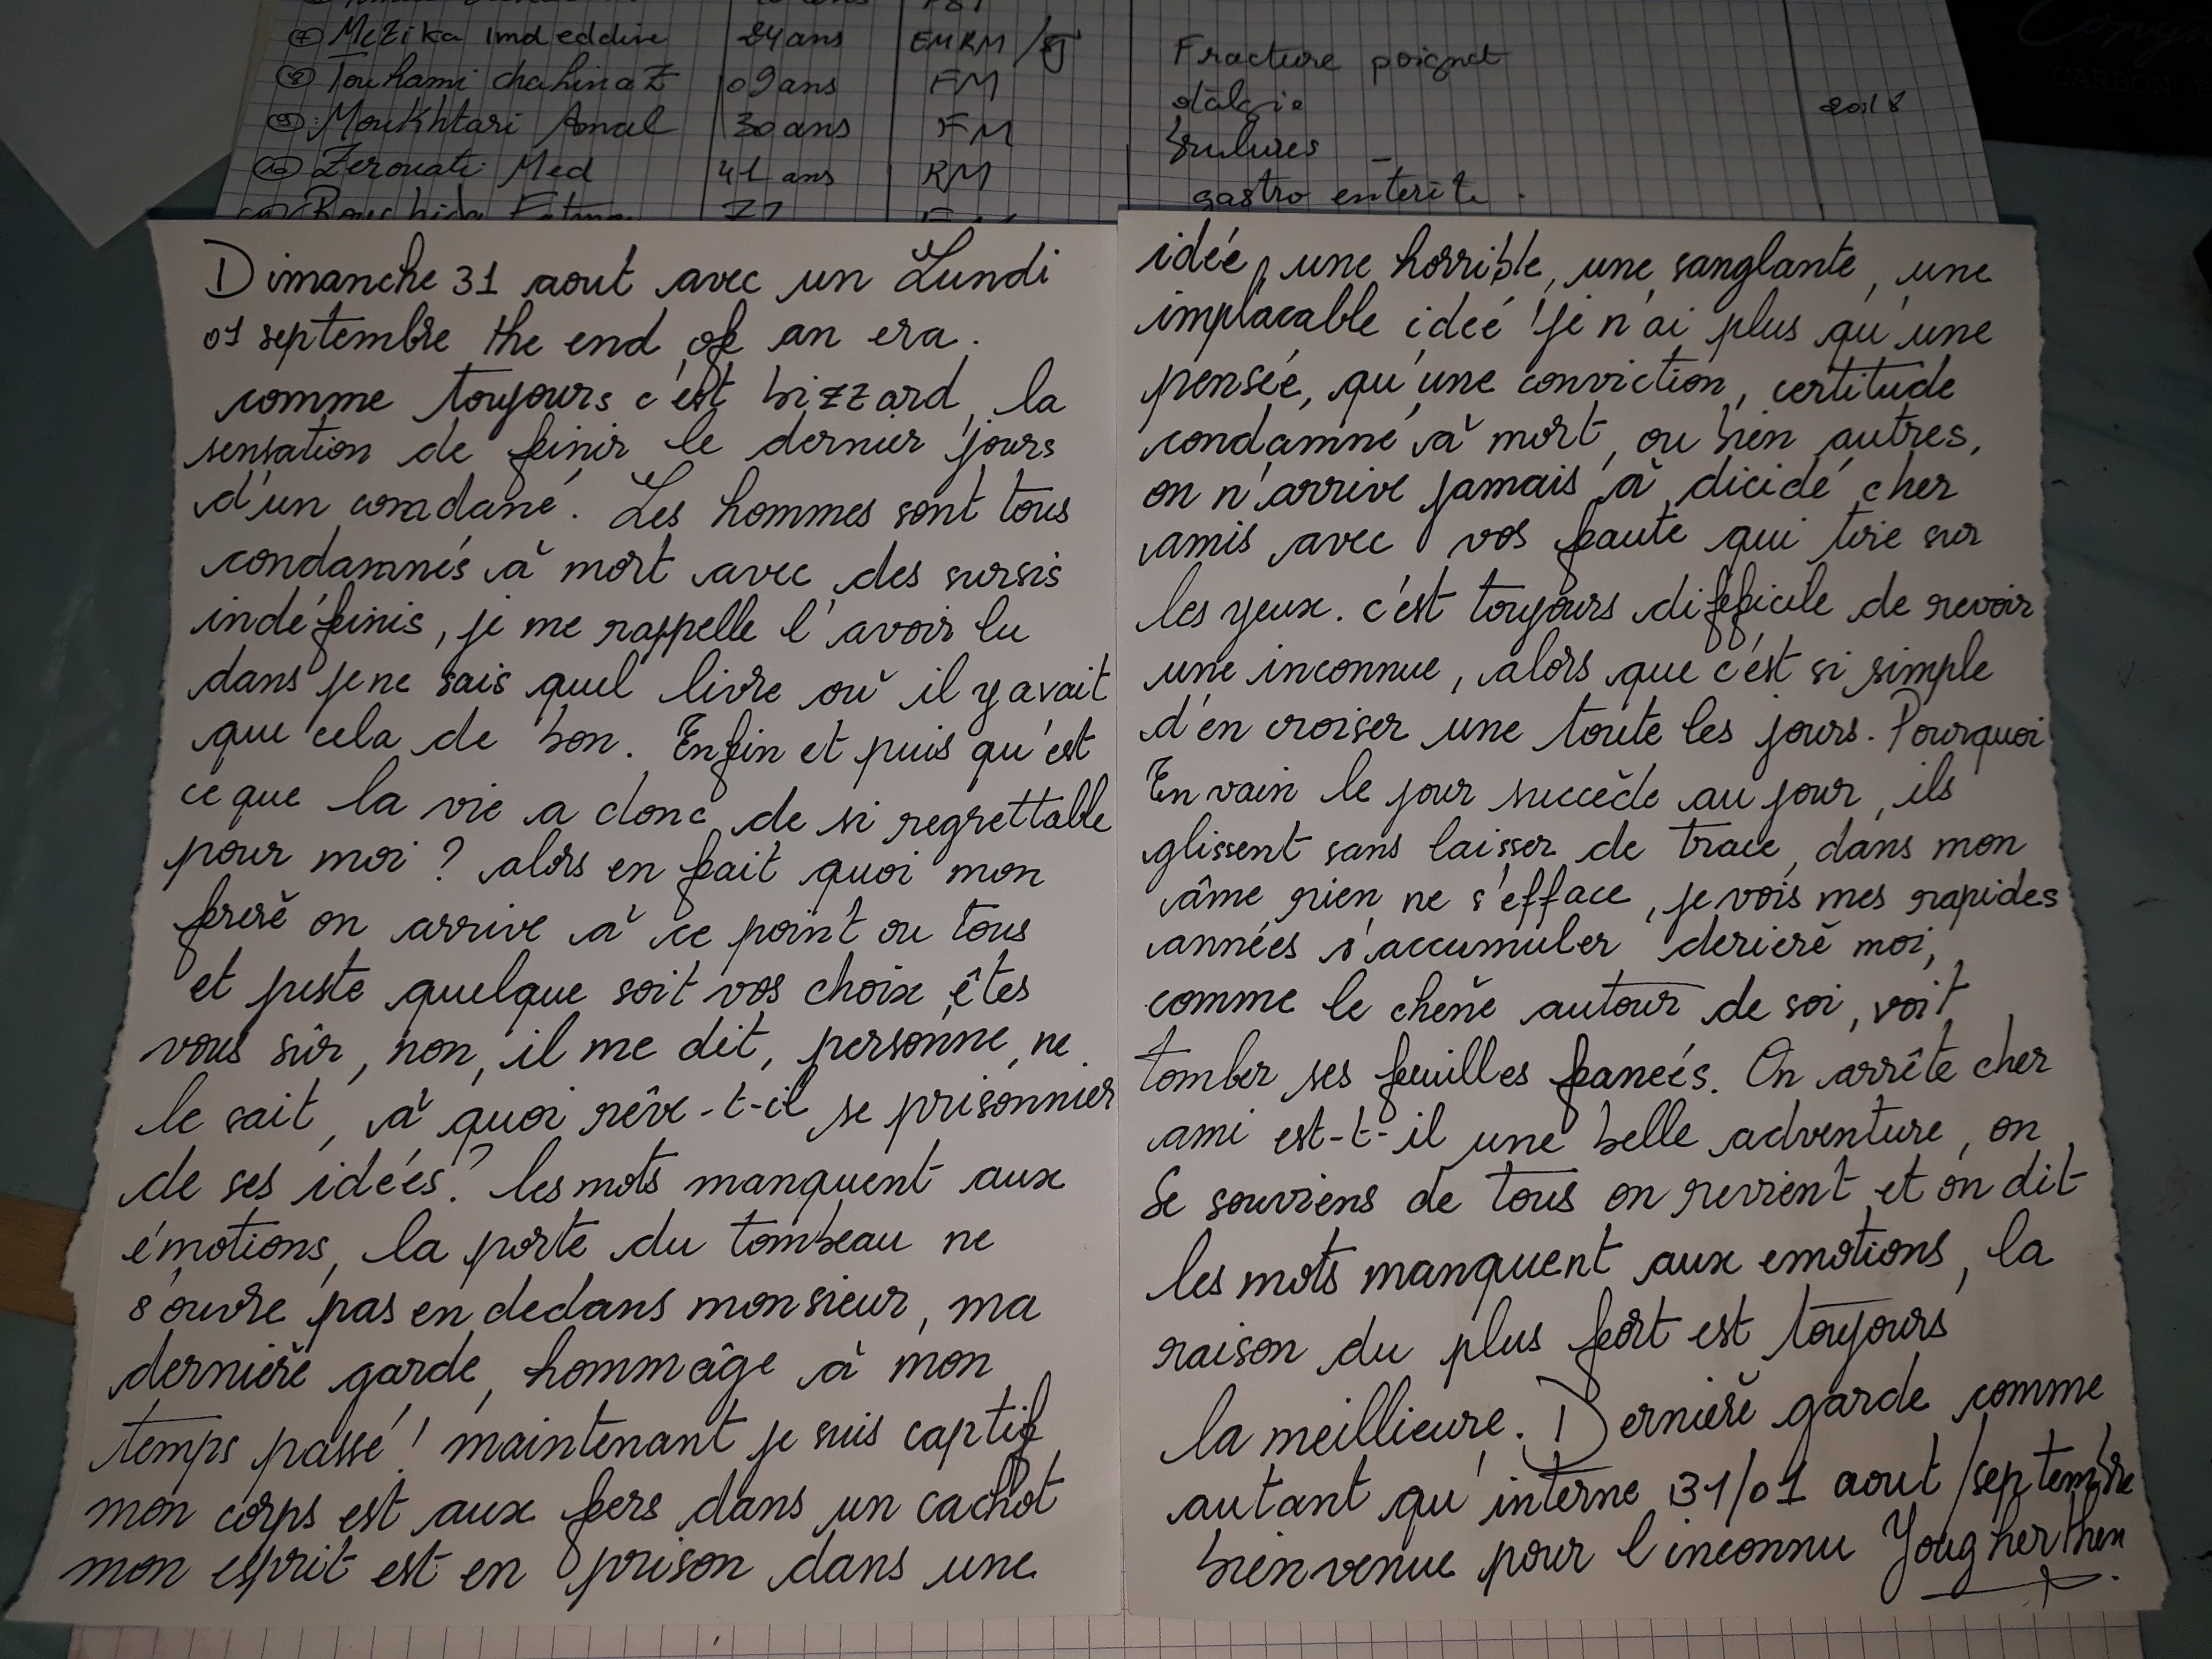 ⑦ Mezika Imdeddine 24 ans EMRM
⑧ Touhami chahinaz 09 ans FM
⑨ Moukhtari Amal 30 ans FM
⑩ Zerouati Med 41 ans RM
Fracture poignet
otalgie
brulures
gastro enterite.
Dimanche 31 aout avec un Lundi
01 septembre the end of an era.
comme toujours c'est bizzard, la
sensation de finir le dernier jours
d'un comdané. Les hommes sont tous
condamnés à mort avec des sursis
indéfinis, je me rappelle l'avoir lu
dans je ne sais quel livre où il y avait
que cela de bon. Enfin et puis qu'est
ce que la vie a donc de si regrettable
pour moi ? alors en fait quoi mon
freré on arrive à ce point ou tous
et juste quelque soit vos choix êtes
vous sûr, non, il me dit, personne ne
le sait, à quoi rêve-t-il se prisonnier
de ses idées? les mots manquent aux
émotions, la porte du tombeau ne
s'ouvre pas en dedans monsieur, ma
derniere garde, hommâge à mon
temps passé! maintenant je suis captif
mon corps est aux fers dans un cachot
mon esprit est en prison dans une
idée, une horrible, une sanglante, une
implacable ideé ! je n'ai plus qu'une
pensée, qu'une conviction, certitude
condamné à mort, ou bien autres,
on n'arrive jamais à dicidé cher
amis avec vos faute qui tire sur
les yeux. c'est toujours difficile de revoir
une inconnue, alors que c'est si simple
d'en croiser une toute les jours. Pourquoi
En vain le jour succède au jour, ils
glissent sans laisser de trace, dans mon
âme rien ne s'efface, je vois mes rapides
années s'accumuler derieré moi,
comme le chene autour de soi, voit
tomber ses feuilles faneés. On arrête cher
ami est-t-il une belle adventure, on
se souviens de tous on revient et on dit
les mots manquent aux emotions, la
raison du plus fort est toujours
la meillieure. Derniere garde comme
autant qu'interne 31/01 aout/septembre
bienvenue pour l'inconnu Yougherthen